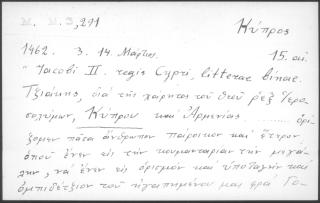 M. M. 3, 291
Κύπρος
1462. 3. 14. Μαρτίου. 15. αἰ.
" Jacobi II. regis Cypri, litterae binae.
Τζιάκης, διὰ τῆς χάριτος τοῦ θεοῦ ρὲξ Ἱερο-
σολύμων, Κύπρου καὶ Ἀρμενίας ...... ὁρί-
ζομεν πάντα ἄνθρωπον παροικον καὶ ἕτερον
ὁποῦ ἔνεν εἰς τὴν κουμανταρίαν τὴν μεγά-
λην, νὰ ἔνεν εἰς ὁρισμὸν καὶ ὑποταγὴν καὶ
τοῦ ἠγαπημένου μας φρὰ Γο-